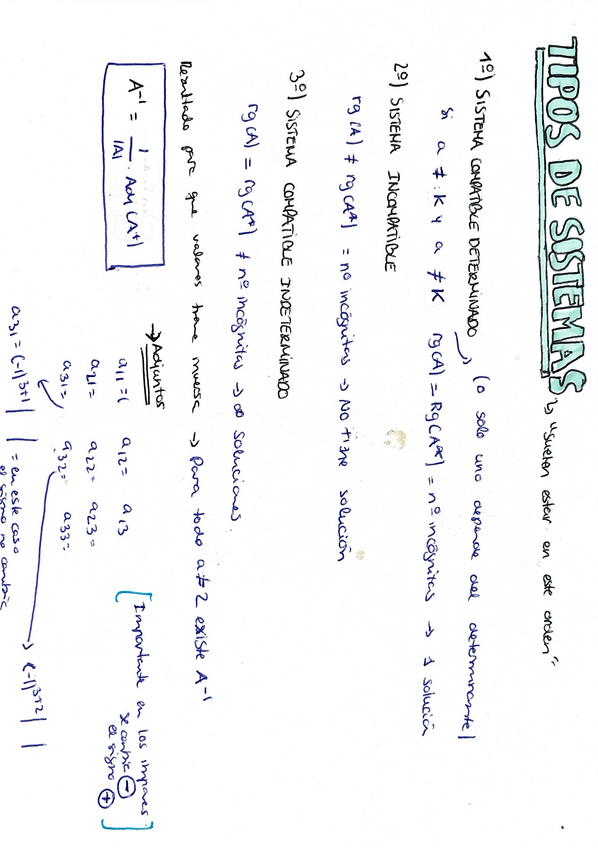 TIPOS DE SISTEMAS
↳ "suelen estar en este orden"
1º) SISTEMA COMPATIBLE DETERMINADO → (o solo uno depende del determinante)
Si a ≠ K y a ≠ K rg(A) = Rg(A*) = nº incógnitas → 1 solución
2º) SISTEMA INCOMPATIBLE
rg(A) ≠ rg(A*) = nº incógnitas → No tiene solución
3º) SISTEMA COMPATIBLE INDETERMINADO
rg(A) = rg(A*) ≠ nº incógnitas → ∞ soluciones.
Resultado para que valores tiene inversa → Para todo a ≠ 2 existe A⁻¹
A⁻¹ = 1/|A| · Adj (Aᵗ)
→ Adjuntos
a11 = ( a12 = a13
a21 = a22 = a23 =
a31 = a32 = a33 =
[Importante en los impares
se cambia ⊖
el signo ⊕]
a31 = (-1)3+1 | | = en este caso
el signo no cambia
→ (-1)3+2 | |